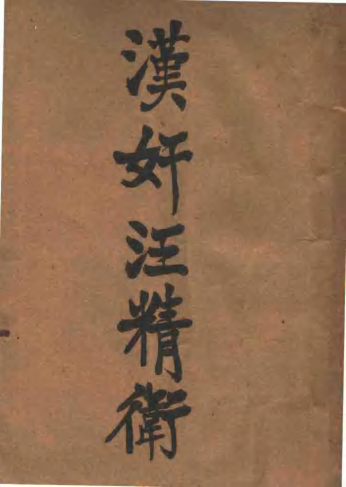 漢奸汪精衛